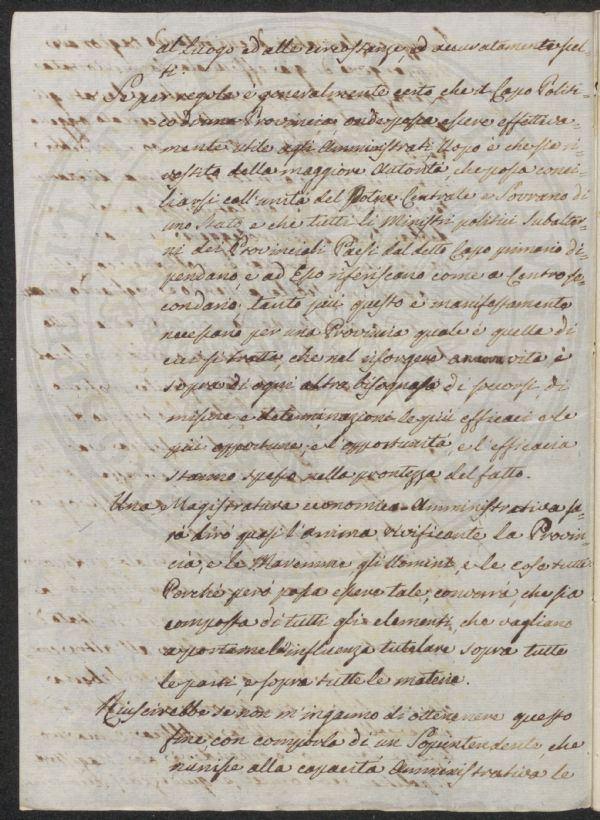 al luogo ed alle circostanze, ed accuratamente scel-
ti.
Se per regola è generalmente certo, che il Capo Politi-
co d'una Provincia onde possa essere effettiva-
mente utile agli Amministrati, Uopo è che sia ri-
vestito della maggiore Autorità, che possa conci-
liarsi coll'unità del Potere Centrale e Sovrano di
uno Stato e che tutti li Ministri politici Subalter-
ni dei Provinciali Paesi dal detto Capo primario di-
pendano, e ad Esso riferiscano come a Centro se-
condario, tanto più questo è manifestamente
necessario per una Provincia quale è quella di
cui si tratta, che nel risorgere a nuova vita è
sopra di ogni altra bisognosa di soccorsi, di
misure, e determinazioni le più efficaci e le
più opportune, e l'opportunità, e l'efficacia
stanno spesso nella prontezza del fatto.
Una Magistratura economico-Amministrativa sa-
rà dirò quasi l'anima vivificante la Provin-
cia, e le Maremme gli Uomini, e le cose tutte
Perché però possa essere tale, converrà, che sia
composta di tutti gli elementi, che vagliano
a portarne l'influenza tutelare sopra tutte
le parti, e sopra tutte le materie.
Riuscirebbe se non m'inganno di ottenenere questo
fine, con comporla di un Sopintendente, che
riunisse alla capacità Amministrativa le